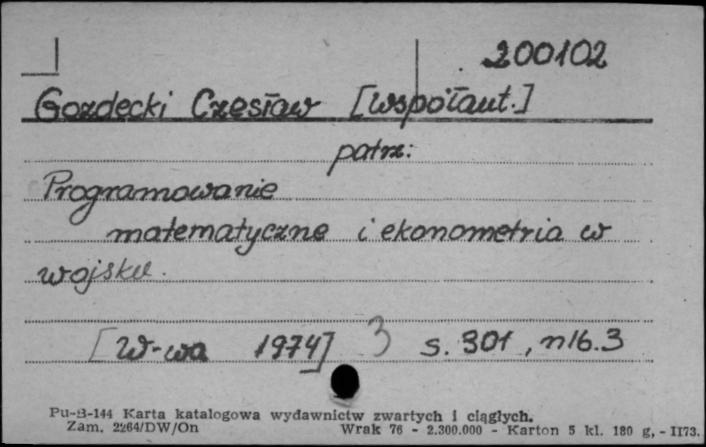 200102
Gozdecki Czesław [współaut.]
patrz:
Programowanie
matematyczne i ekonometria w
wojsku.
[W-wa 1974] 3 s. 301, nlb. 3
Pu-B-144 Karta katalogowa wydawnictw zwartych i ciągłych.
Zam. 2264/DW/On Wrak 76 - 2.300.000 - Karton 5 kl. 180 g, - II73.